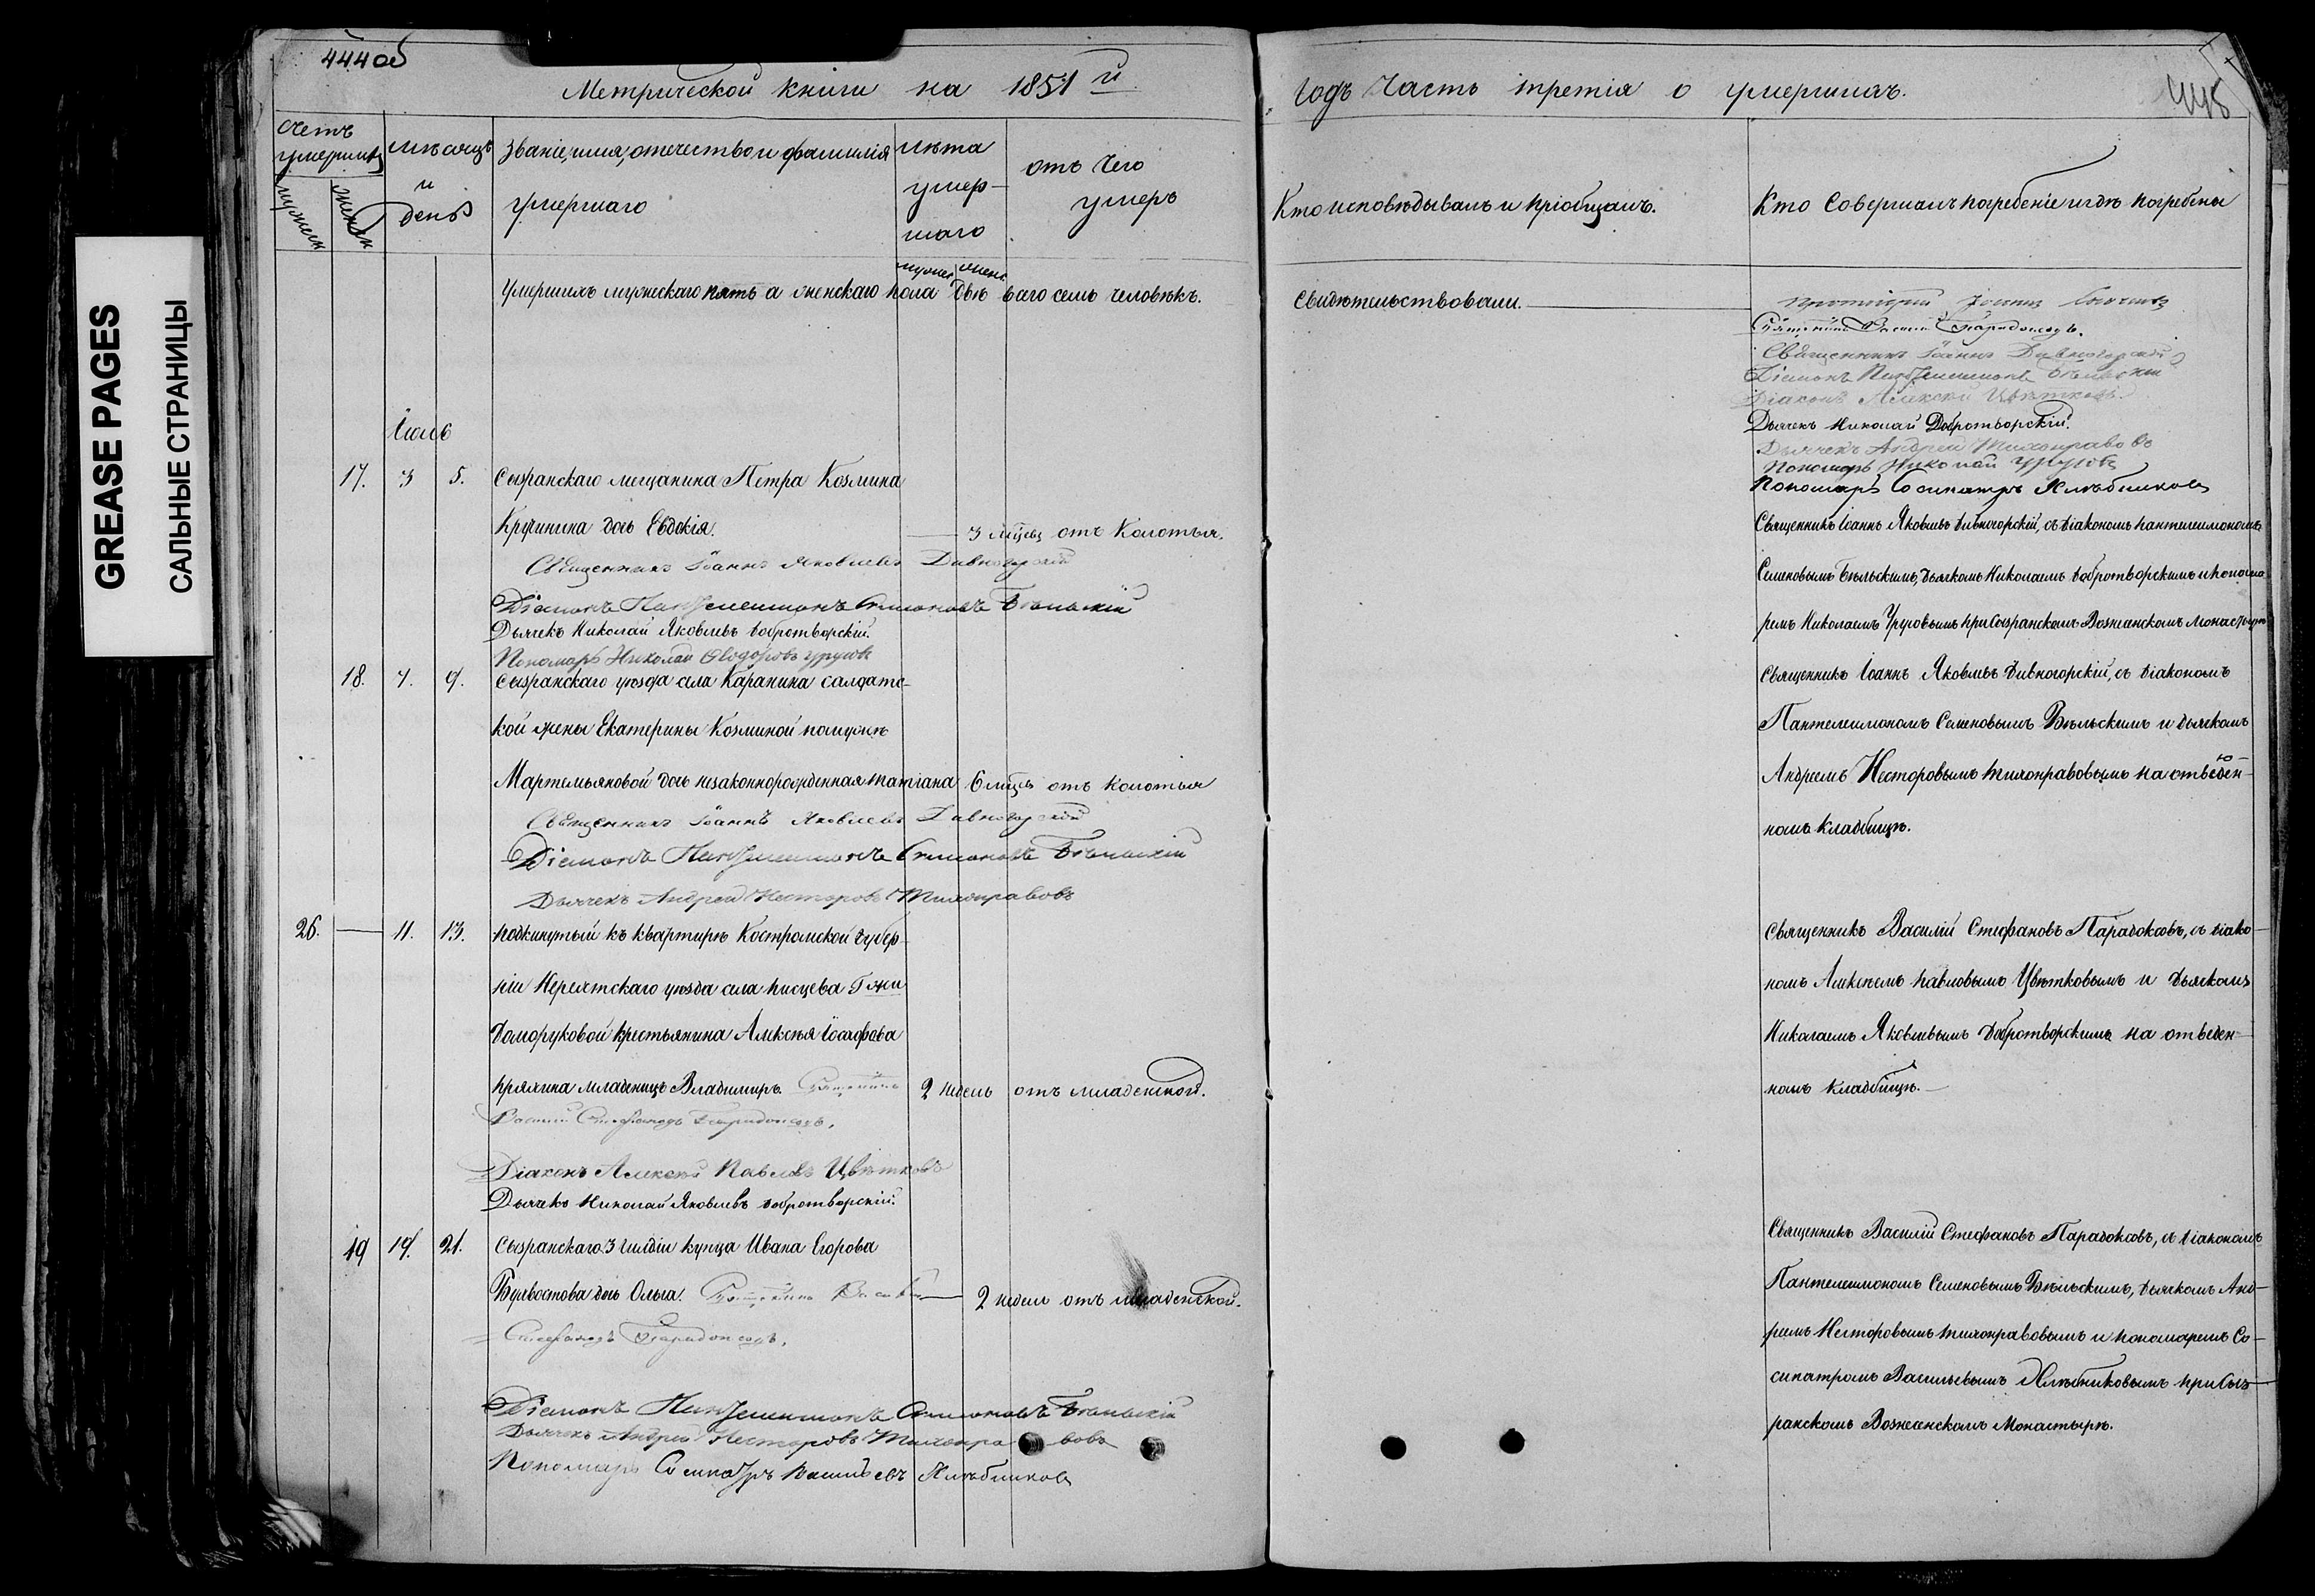 GREASE PAGES
САЛЬНЫЕ СТРАНИЦЫ
444об
Метрической книги на 1851 й
Счетъ умершихъ
мужеск
женск
мѣсяцъ и день
Званіе, имя, отечество и фамилія умершаго
лѣта умер-
шаго
мужск
женс
отъ чего умеръ
Умершихъ мужескаго пять а женскаго пола двѣ всего семь человѣкъ.
Іюль
17. 3 5. Сызранскаго мещанина Петра Козмина
Кручинина дочь Евдокія. 3 мѣсяц отъ колотья.
Священникъ Іоаннъ Яковлевъ Дивногорскій
Діаконъ Пантелеимонъ Семеновъ Бѣльскій
Дьячекъ Николай Яковлевъ Добротворскій.
Пономарь Николай Ѳеодоровъ Урусовъ
18. 7. 9. Сызранскаго уѣзда села Каранина салдатс-
кой жены Екатерины Козминой по мужѣ
Мартемьяновой дочь незаконнорожденная Татіана 6 мѣсц отъ колотья
Священникъ Іоаннъ Яковлевъ Дивногорскій
Діаконъ Пантелеимонъ Семеновъ Бѣльскій
Дьячекъ Андрей Несторовъ Тихонравовъ
26. 11. 13. Подкинутый къ квартирѣ Костромской губер-
ніи Нерехтскаго уѣзда села Писцева Г-жи
Доморуковой крестьянина Алексѣя Іоасафова
Пряхина младенецъ Владимиръ. Священникъ 2 недель отъ младенской.
Василій Стефановъ Парадоксовъ.
Діаконъ Алексѣй Павловъ Цвѣтковъ
Дьячекъ Николай Яковлевъ Добротворскій.
19 19. 21. Сызранскаго 3 гилдіи купца Ивана Егорова
Буквостова дочь Ольга. Священникъ Василій 2 недель отъ младенской.
Стефановъ Парадоксовъ.
Діаконъ Пантелеимонъ Семеновъ Бѣльскій
Дьячекъ Андрей Несторовъ Тихонравовъ
Пономарь Сосипатръ Васильевъ Хлѣбниковъ
годъ Часть третія о умершихъ.
445
Кто исповѣдывалъ и пріобщалъ.
Кто совершалъ погребеніе и гдѣ погребены
Свидѣтельствовали.
Протоіерей Іоаннъ
Священникъ Василій Парадоксовъ.
Священникъ Іоаннъ Дивногорскій
Діаконъ Пантелеимонъ Бѣльскій
Діаконъ Алексѣй Цвѣтковъ.
Дьячекъ Николай Добротворскій.
Дьячекъ Андрей Тихонравовъ
Пономарь Николай Урусовъ
Пономарь Сосипатръ Хлѣбниковъ
Священникъ Іоаннъ Яковлевъ Дивногорскій, съ діакономъ Пантелеимономъ
Семеновымъ Бѣльскимъ, дьячкомъ Николаемъ Добротворскимъ и понома
ремъ Николаемъ Урусовымъ при Сызранскомъ Вознесенскомъ Монастырѣ
Священникъ Іоаннъ Яковлевъ Дивногорскій, съ діакономъ
Пантелеимономъ Семеновымъ Бѣльскимъ и дьячкомъ
Андреемъ Несторовымъ Тихонравовымъ на отведен-
номъ кладбищѣ.
Священникъ Василій Стефановъ Парадоксовъ, съ діако-
номъ Алексѣемъ Павловымъ Цвѣтковымъ и дьячкомъ
Николаемъ Яковлевымъ Добротворскимъ на отведен-
номъ кладбищѣ.
Священникъ Василій Стефановъ Парадоксовъ, съ діакономъ
Пантелеимономъ Семеновымъ Бѣльскимъ, дьячкомъ Анд-
реемъ Несторовымъ Тихонравовымъ и пономаремъ Со-
сипатромъ Васильевымъ Хлѣбниковымъ при Сыз-
ранскомъ Вознесенскомъ Монастырѣ.